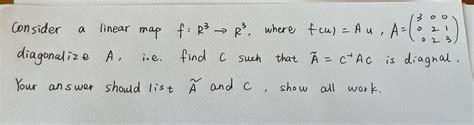 Consider a linear map f: R³ → R³, where f(u) = Au, A = (3 0 0; 0 2 1; 0 2 3)
diagonalize A, i.e. find C such that Ã = C⁻¹AC is diagnal.
Your answer should list Ã and C, show all work.